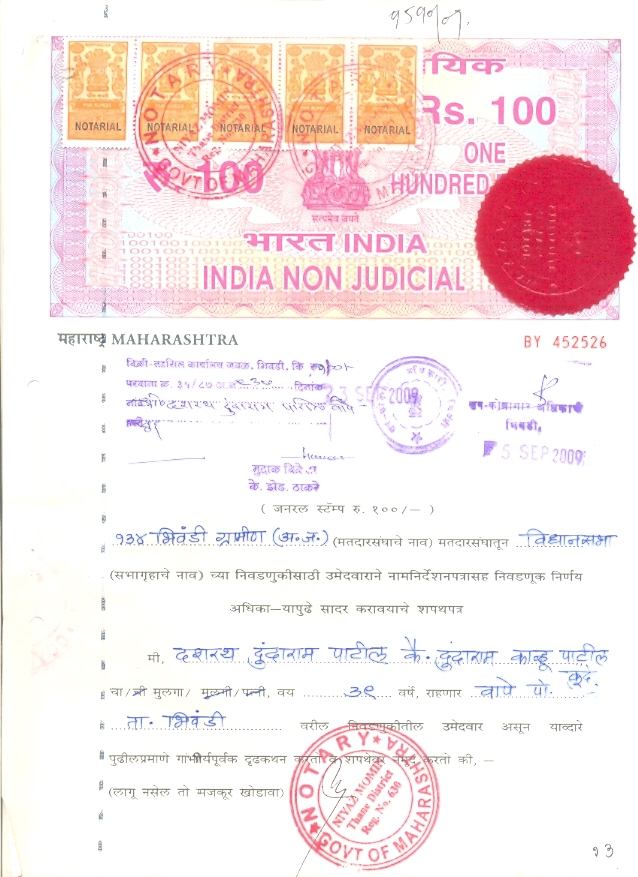 १५१०/०९.
NOTARIAL NOTARIAL NOTARIAL NOTARIAL NOTARIAL
NOTARY GOVT OF MAHARASHTRA
NIYAZ MOMIN
Thane District
Reg. No. 630
Rs. 100
रु. 100
ONE
HUNDRED
सत्यमेव जयते
भारत INDIA
INDIA NON JUDICIAL
महाराष्ट्र MAHARASHTRA
BY 452526
परवाना क्र. ३५/८७
दिनांक
23 SEP 2009
दशरथ दुंदाराम पाटील
उप-कोषागार अधिकारी
भिवंडी.
5 SEP 2009
मुद्रांक विक्रेता
के. झेड. ठाकरे
( जनरल स्टॅम्प रु. १००/– )
१३४ भिवंडी ग्रामीण (अ.ज.) (मतदारसंघाचे नाव) मतदारसंघातून विधानसभा
(सभागृहाचे नाव) च्या निवडणुकीसाठी उमेदवाराने नामनिर्देशनपत्रासह निवडणूक निर्णय
अधिका–यापुढे सादर करावयाचे शपथपत्र
मी, दशरथ दुंदाराम पाटील कै. दुंदाराम काळू पाटील
चा/ श्री मुलगा/ मुलगी/पत्नी, वय ३९ वर्षे, राहणार वापे पो. कुंदे.
ता. भिवंडी वरील निवडणुकीतील उमेदवार असून याव्दारे
पुढीलप्रमाणे गांभीर्यपूर्वक दृढकथन करतो व शपथेवर नमूद करतो की, –
(लागू नसेल तो मजकूर खोडावा)
NOTARY GOVT OF MAHARASHTRA
NIYAZ MOMIN
Thane District
Reg. No. 630
१3